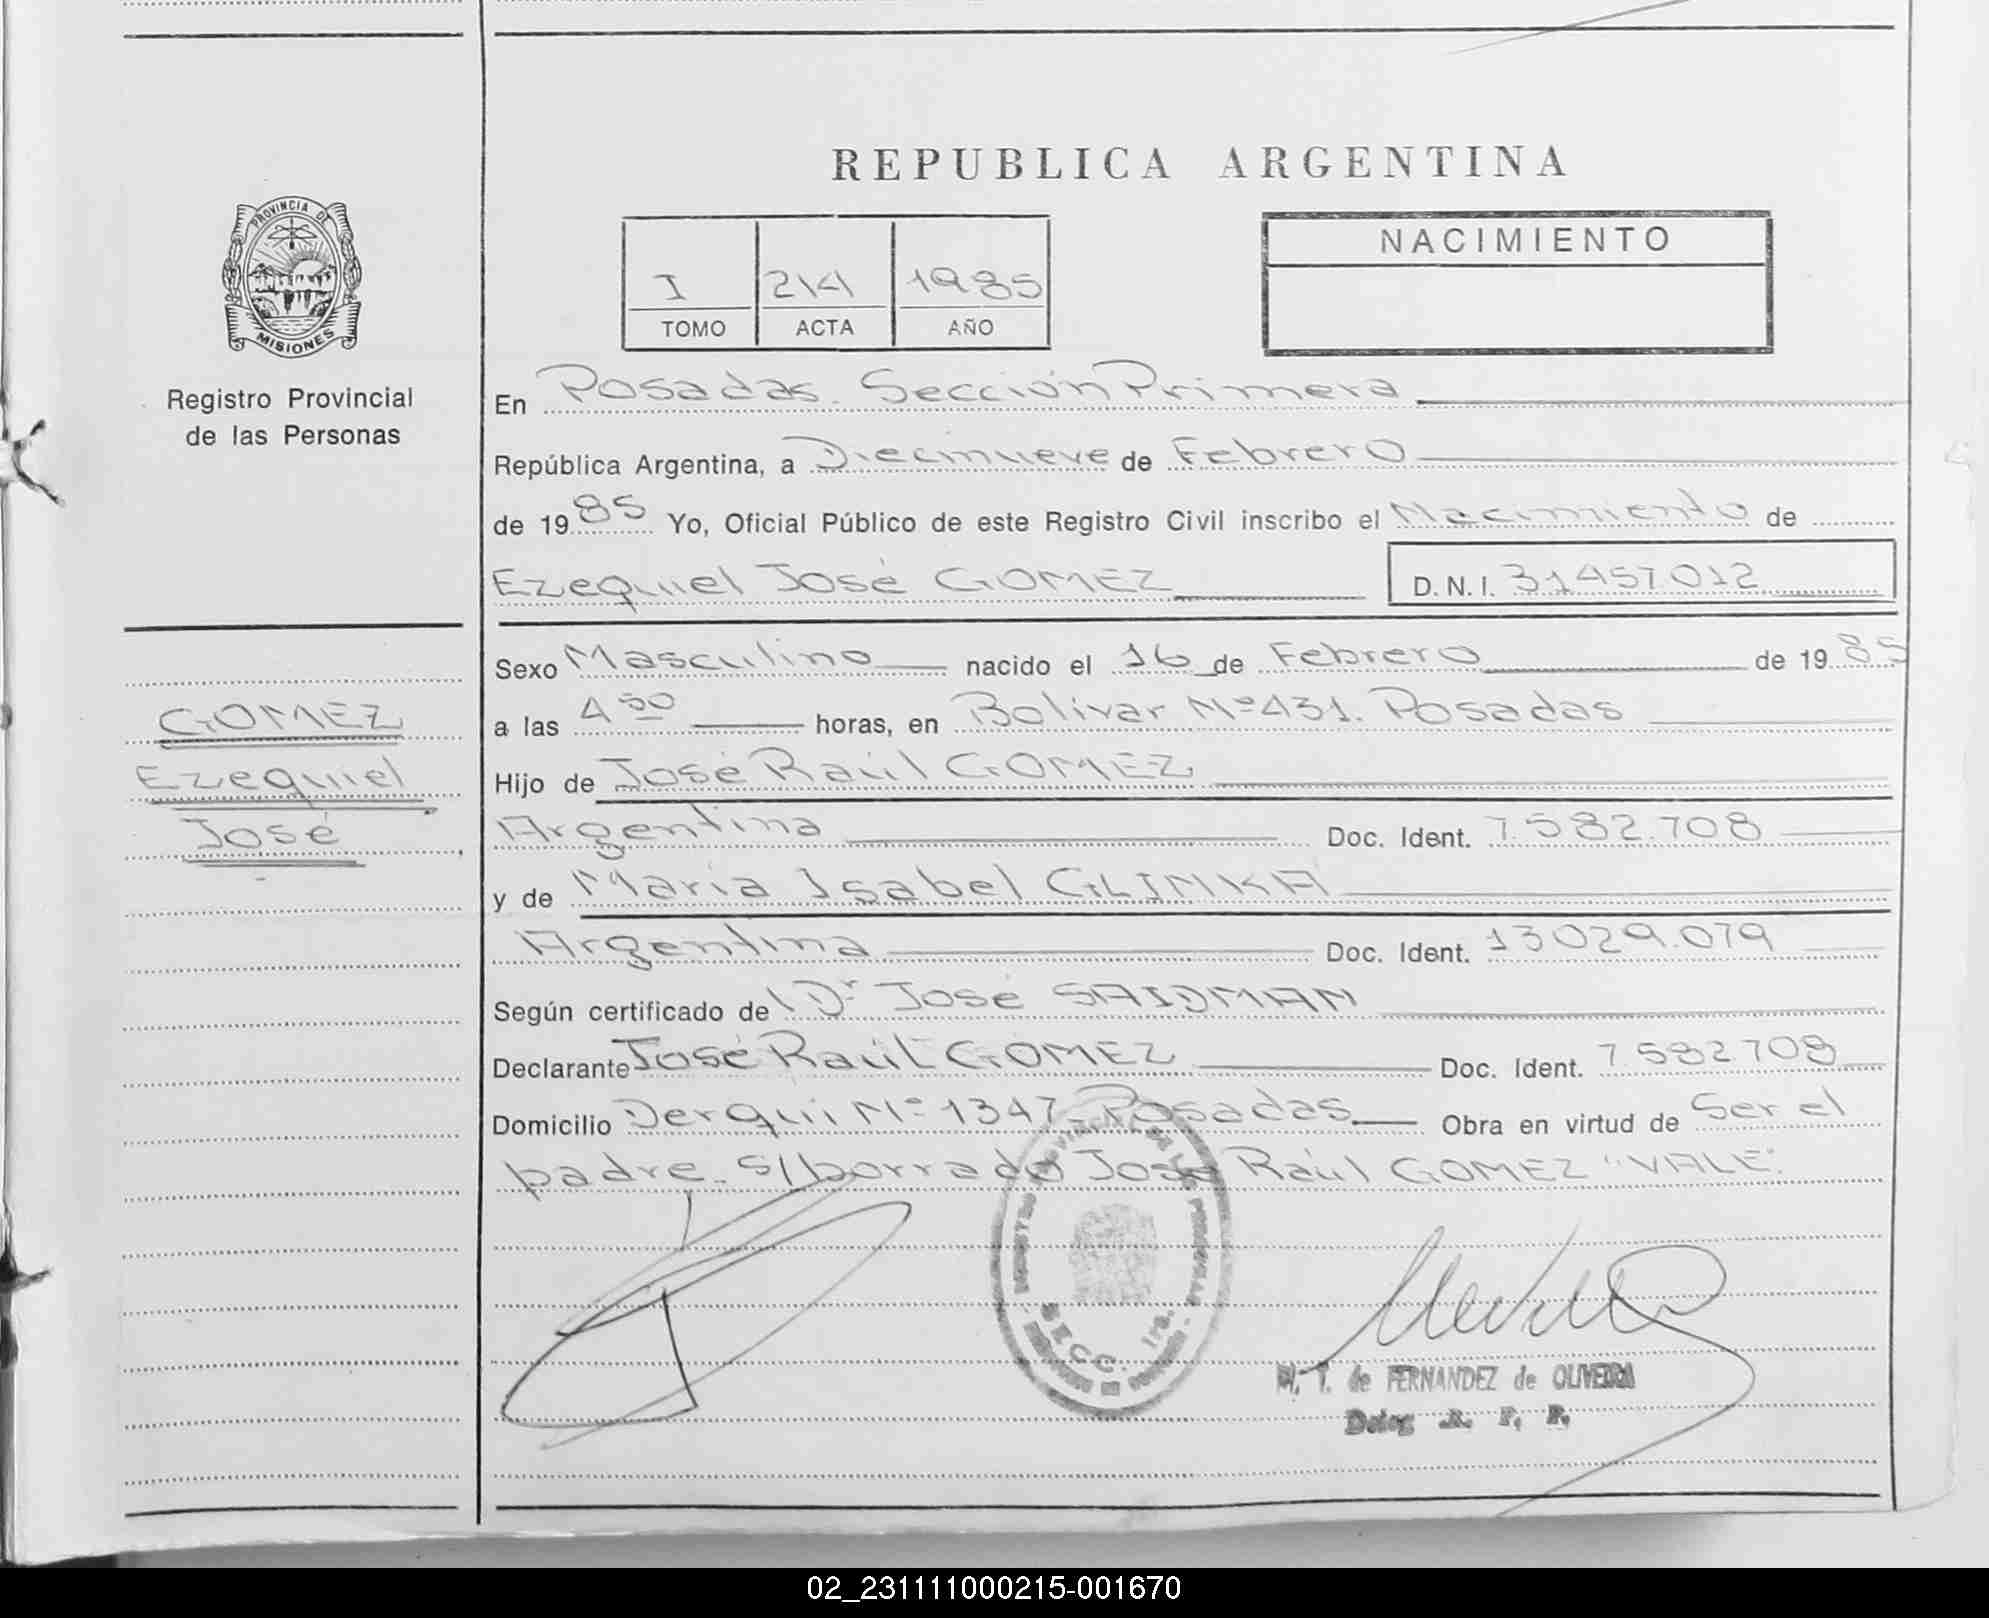 REPUBLICA ARGENTINA
PROVINCIA DE
MISIONES
Registro Provincial
de las Personas
I 214 1985
TOMO ACTA AÑO
NACIMIENTO
En Posadas. Sección Primera
República Argentina, a Diecinueve de Febrero
de 1985 Yo, Oficial Público de este Registro Civil inscribo el Nacimiento de
Ezequiel José GOMEZ D.N.I. 31457.012
GOMEZ
Ezequiel
José
Sexo Masculino nacido el 16 de Febrero de 1985
a las 4 50 horas, en Bolívar Nº 431. Posadas
Hijo de José Raúl GOMEZ
Argentina Doc. Ident. 7.582.708
y de María Isabel GLINKA
Argentina Doc. Ident. 13029.079
Según certificado de Dr José SAIDMAN
Declarante José Raúl GOMEZ Doc. Ident. 7.582708
Domicilio Derqui Nº 1347 Posadas Obra en virtud de Ser el
padre. s/borrado José Raúl GOMEZ "VALE".
SECC. 1ra.
M. T. de FERNANDEZ de OLIVEIRA
Deleg. R. P. P.
02_231111000215-001670